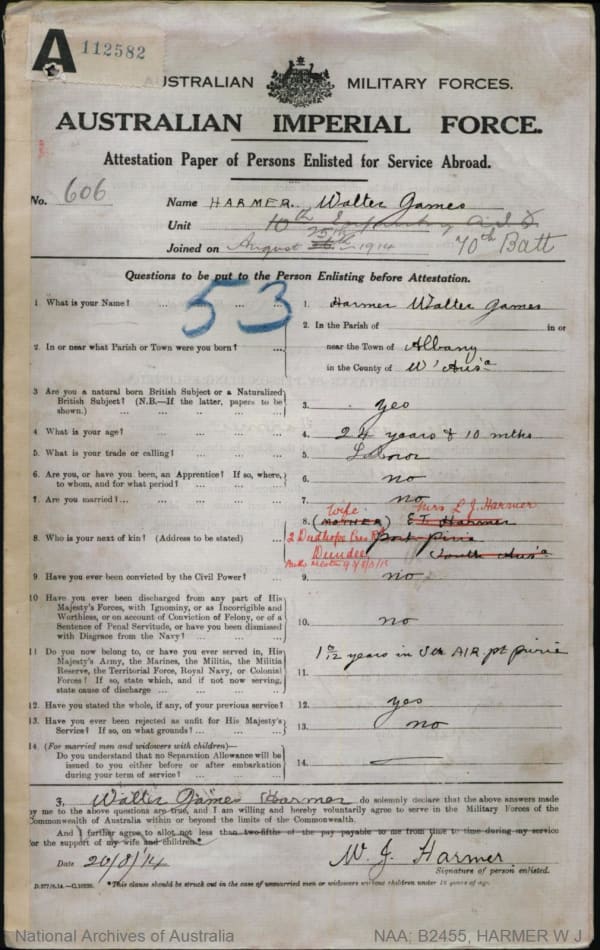 A
112582
AUSTRALIAN MILITARY FORCES.
AUSTRALIAN IMPERIAL FORCE.
Attestation Paper of Persons Enlisted for Service Abroad.
No. 606
Name HARMER. Walter James
Unit 10th Infantry A.I.F.
70th Batt
Joined on August 25th 1914
Questions to be put to the Person Enlisting before Attestation.
53
1 What is your Name? ... ... ... ...
1. Harmer Walter James
2. In or near what Parish or Town were you born? ...
2. In the Parish of in or
near the Town of Albany
in the County of W' Aus'a
3 Are you a natural born British Subject or a Naturalized
British Subject? (N.B.—If the latter, papers to be
shown.) ... ... ... ...
3. yes
4. What is your age? ... ... ... ...
4. 24 years & 10 mths
5. What is your trade or calling? ... ... ...
5. Labror
6. Are you, or have you been, an Apprentice? If so, where,
to whom, and for what period? ... ... ...
6. no
7. Are you married? ... ... ... ...
7. no
8. Who is your next of kin? (Address to be stated) ...
wife Mrs L. J. Harmer
8. (MOTHER) E. Harmer
2 Dudhope Cres Rd port pirie
Dundee South Aus'a
9 Have you ever been convicted by the Civil Power? ...
9. no
10 Have you ever been discharged from any part of His
Majesty's Forces, with Ignominy, or as Incorrigible and
Worthless, or on account of Conviction of Felony, or of a
Sentence of Penal Servitude, or have you been dismissed
with Disgrace from the Navy? ... ... ...
10. no
11 Do you now belong to, or have you ever served in, His
Majesty's Army, the Marines, the Militia, the Militia
Reserve, the Territorial Force, Royal Navy, or Colonial
Forces? If so, state which, and if not now serving,
state cause of discharge ... ... ...
11. years in pt pirie
12. Have you stated the whole, if any, of your previous service?
12. yes
13. Have you ever been rejected as unfit for His Majesty's
Service? If so, on what grounds? ... ... ...
13. no
14. (For married men and widowers with children)—
Do you understand that no Separation Allowance will be
issued to you either before or after embarkation
during your term of service? ... ... ...
14.
I, Walter James Harmer do solemnly declare that the above answers made
by me to the above questions are true, and I am willing and hereby voluntarily agree to serve in the Military Forces of the
Commonwealth of Australia within or beyond the limits of the Commonwealth.
And I further agree to allot not less than two-fifths of the pay payable to me from time to time during my service
for the support of my wife and children.*
Date 20/8/14 W. J. Harmer
Signature of person enlisted.
*This clause should be struck out in the case of unmarried men or widowers without children under 18 years of age.
National Archives of Australia NAA: B2455, HARMER W J